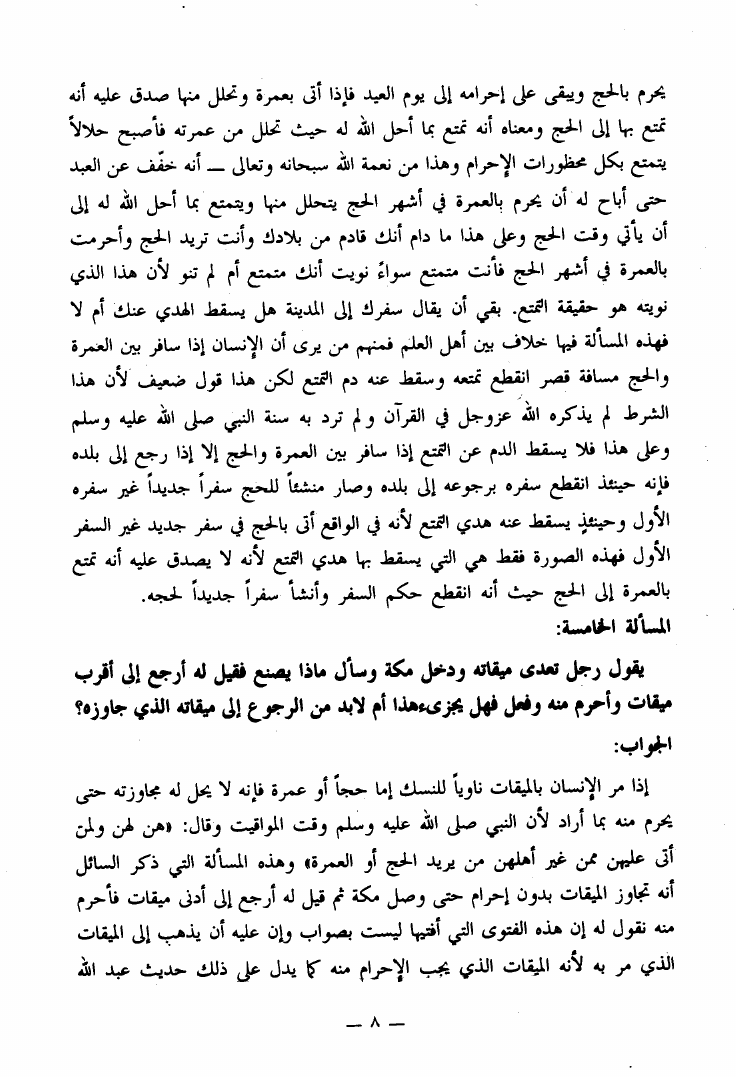 يحرم بالحج ويبقى على إحرامه إلى يوم العيد فإذا أتى بعمرة وتحلل منها صدق عليه أنه
تمتع بها إلى الحج ومعناه أنه تمتع بما أحل الله له حيث تحلل من عمرته فأصبح حلالاً
يتمتع بكل محظورات الإحرام وهذا من نعمة الله سبحانه وتعالى — أنه خفّف عن العبد
حتى أباح له أن يحرم بالعمرة في أشهر الحج يتحلل منها ويتمتع بما أحل الله له إلى
أن يأتي وقت الحج وعلى هذا ما دام أنك قادم من بلادك وأنت تريد الحج وأحرمت
بالعمرة في أشهر الحج فأنت متمتع سواءً نويت أنك متمتع أم لم تنو لأن هذا الذي
نويته هو حقيقة التمتع. بقي أن يقال سفرك إلى المدينة هل يسقط الهدي عنك أم لا
فهذه المسألة فيها خلاف بين أهل العلم فمنهم من يرى أن الإنسان إذا سافر بين العمرة
والحج مسافة قصر انقطع تمتعه وسقط عنه دم التمتع لكن هذا قول ضعيف لأن هذا
الشرط لم يذكره الله عزوجل في القرآن ولم ترد به سنة النبي صلى الله عليه وسلم
وعلى هذا فلا يسقط الدم عن التمتع إذا سافر بين العمرة والحج إلا إذا رجع إلى بلده
فإنه حينئذ انقطع سفره برجوعه إلى بلده وصار منشئاً للحج سفراً جديداً غير سفره
الأول وحينئذٍ يسقط عنه هدي التمتع لأنه في الواقع أتى بالحج في سفر جديد غير السفر
الأول فهذه الصورة فقط هي التي يسقط بها هدي التمتع لأنه لا يصدق عليه أنه تمتع
بالعمرة إلى الحج حيث أنه انقطع حكم السفر وأنشأ سفراً جديداً لحجه.
المسألة الخامسة:
يقول رجل تعدى ميقاته ودخل مكة وسأل ماذا يصنع فقيل له أرجع إلى أقرب
ميقات وأحرم منه وفعل فهل يجزىء هذا أم لابد من الرجوع إلى ميقاته الذي جاوزه؟
الجواب:
إذا مر الإنسان بالميقات ناوياً للنسك إما حجاً أو عمرة فإنه لا يحل له مجاوزته حتى
يحرم منه بما أراد لأن النبي صلى الله عليه وسلم وقت المواقيت وقال: «هن لهن ولمن
أتى عليهن ممن غير أهلهن من يريد الحج أو العمرة» وهذه المسألة التي ذكر السائل
أنه تجاوز الميقات بدون إحرام حتى وصل مكة ثم قيل له أرجع إلى أدنى ميقات فأحرم
منه نقول له إن هذه الفتوى التي أفتيها ليست بصواب وإن عليه أن يذهب إلى الميقات
الذي مر به لأنه الميقات الذي يجب الإحرام منه كما يدل على ذلك حديث عبد الله
— ٨ —